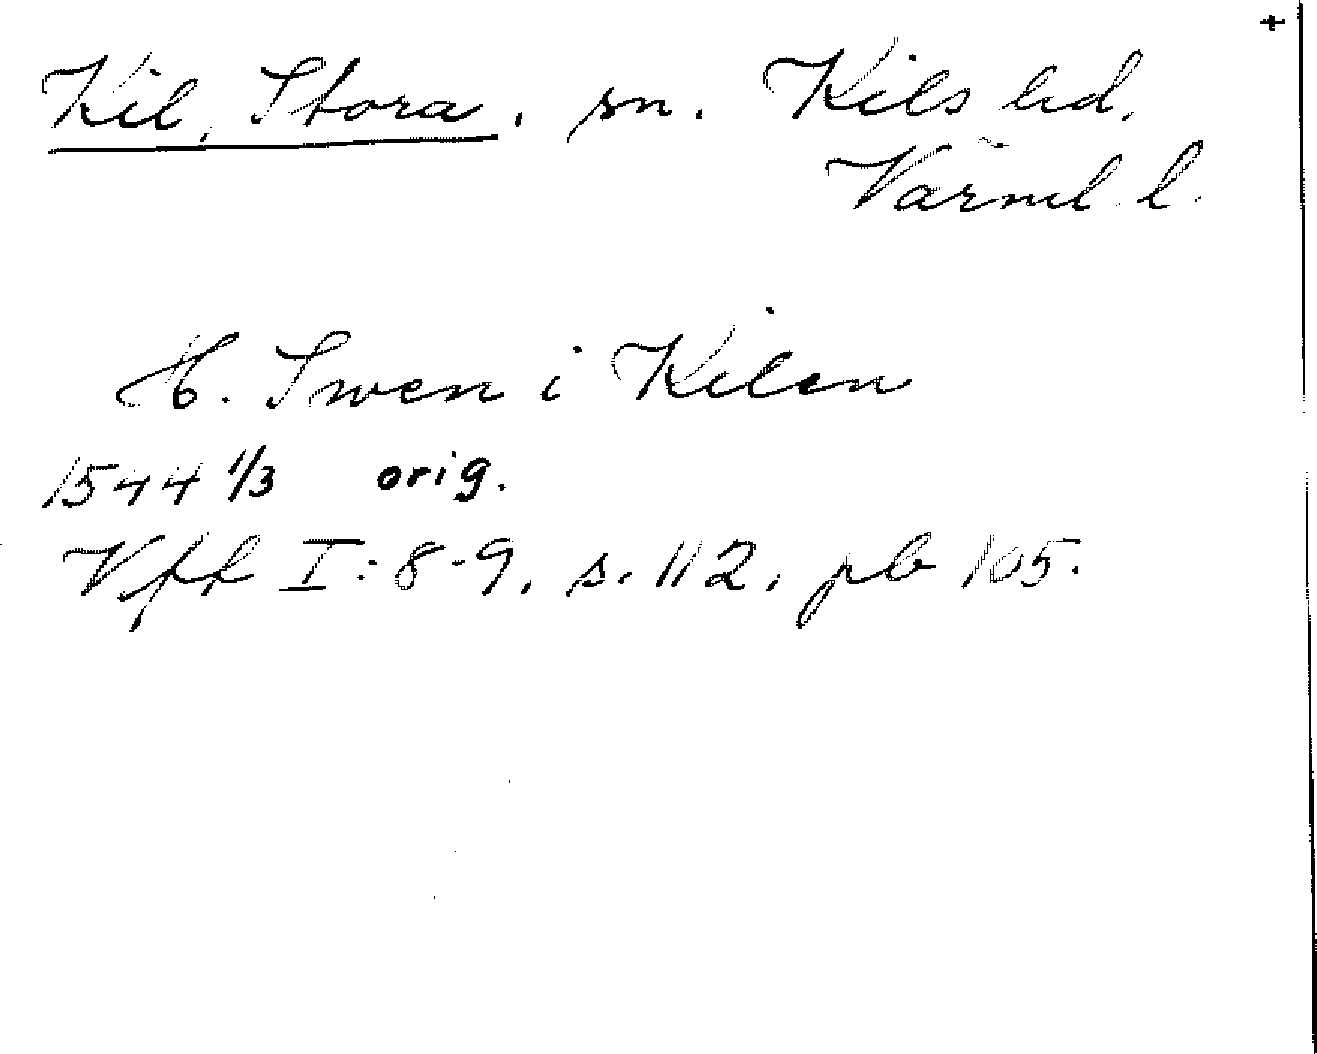 +
Kil, Stora. sn. Kils hd.
Värml. l.
H. Swen i Kilen
1544 1/3 orig.
Vff I:8-9, s. 112, pb 105.